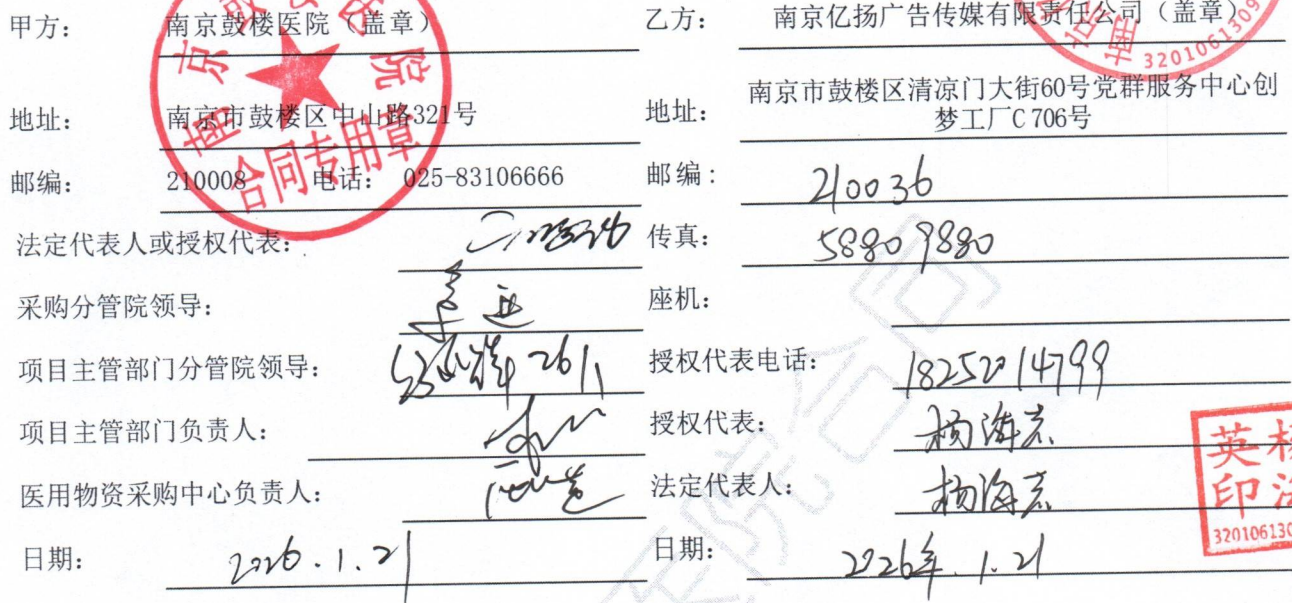 甲方： 南京鼓楼医院（盖章）
地址： 南京市鼓楼区中山路321号
邮编： 210008 电话： 025-83106666
法定代表人或授权代表：
采购分管院领导：
项目主管部门分管院领导：
项目主管部门负责人：
医用物资采购中心负责人：
日期： 2026.1.21
合同专用章
乙方： 南京亿扬广告传媒有限责任公司（盖章）
地址： 南京市鼓楼区清凉门大街60号党群服务中心创
梦工厂C706号
邮编： 210036
传真： 58809880
座机：
授权代表电话： 18252014799
授权代表：
法定代表人：
日期： 2026年.1.21